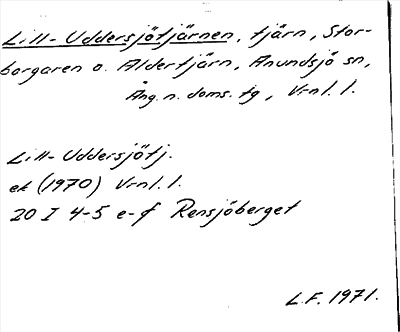 Lill-Uddersjötjärnen, tjärn, Stor-
borgaren o. Aldertjärn, Anundsjö sn,
Ång. n. doms. tg, Vrnl. l.
Lill-Uddersjötj.
ek (1970) Vrnl. l.
20 I 4-5 e-f Rensjöberget
L.F. 1971.